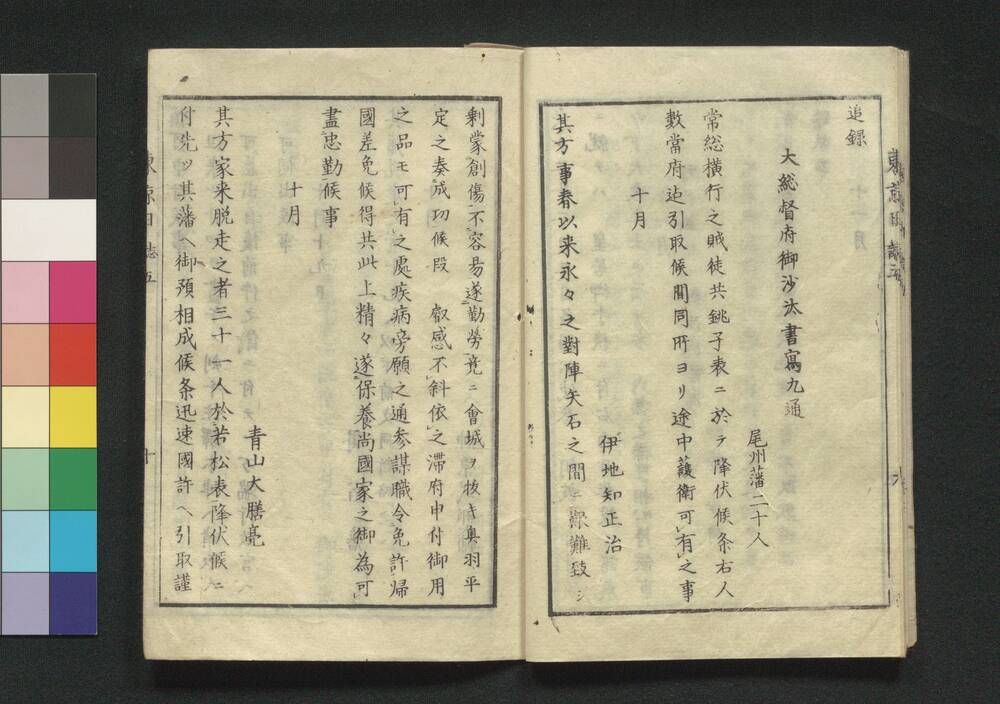 追録
大総督府御沙汰書寫九通
尾州藩二十人
常総横行之賊徒共銚子表ニ於テ降伏候条右人
数當府迠引取候間同所ヨリ途中護衛可有之事
十月
伊地知正治
其方事春以来永々之對陣矢石之間ニ艱難致シ
剰蒙創傷不容易遂勤勞竟ニ會城ヲ抜キ奥羽平
定之奏成功候段 叡感不斜依之滞府申付御用
之品モ可有之處疾病旁願之通参謀職令免許歸
國差免候得共此上精々遂保養尚國家之御為可
盡忠勤候事
十月
青山大膳亮
其方家来脱走之者三十一人於若松表降伏候ニ
付先ツ其藩ヘ御預相成候条迅速國許ヘ引取謹
東京日誌五
十